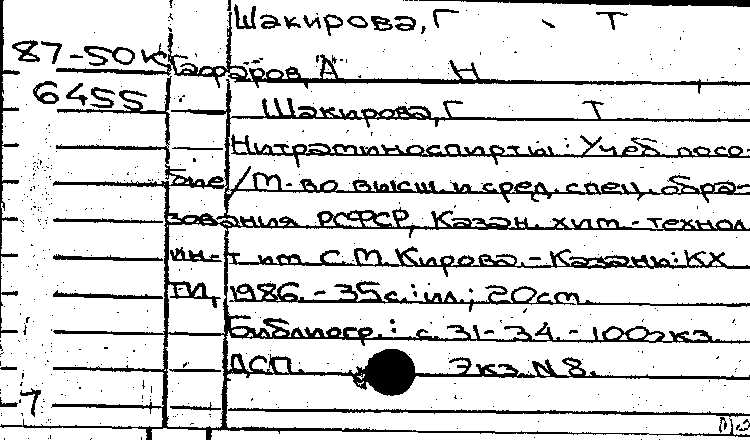 Шакирова, Г Т
87-50К Гафаров, А Н
6455 Шакирова, Г Т
Нитраминоспирты: Учеб посо-
бие / М-во высш. и сред. спец. обра-
зования РСФСР, Казан. хим.-технол
ин-т им С.М. Кирова. - Казань: КХ
ТИ, 1986. - 35с.: ил.; 20см.
Библиогр.: с. 31-34. - 100экз.
ДСП. Экз. N 8.
7